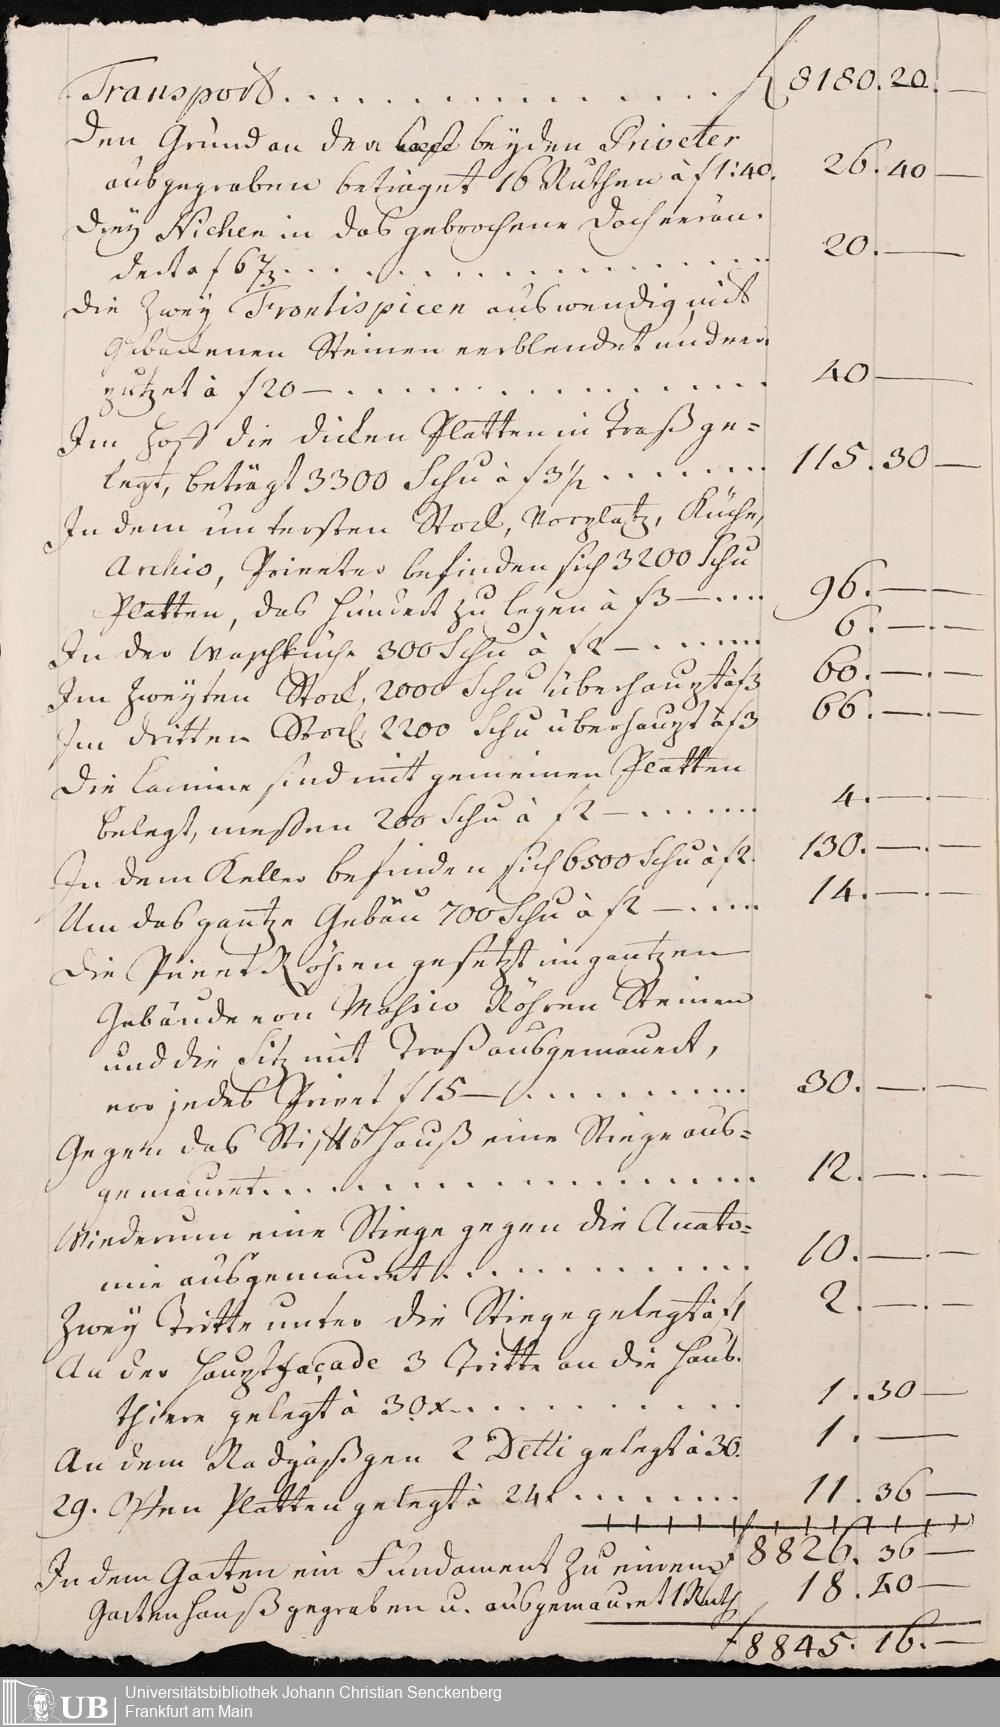 Transport . . . . . . . . . . . . . . . . f 8180. 20. —
Den Grund an den beyden Priveter
ausgegraben betraget 16 Ruthen à f 1:40. 26. 40 —
Drey Nichen in das gebrochene Dach verän-
dert a f 6 2/3 . . . . . . . . . . . . . . 20. —
Die Zwey Frontispicen auswendig mit
Gebackenen Steinen verblendet und ver-
putzet à f 20 — . . . . . . . . . . . . . 40 —
Im Hoff die dicken Platten in Traß ge=
legt, beträgt 3300 Schu à f 3 1/2 . . . . . . . 115. 30 —
In dem untersten Stock, Vorplatz, Küche,
Archiv, Priveter befinden sich 3200 Schu
Platten, das Hundert zu legen à f 3 — . . . . 96. — . —
In der Waschküche 300 Schu à f 2 — . . . . . . 6. — . —
Im Zweyten Stock, 2000 Schu überhaupt à f 3 60. — . —
Im dritten Stock, 2200 Schu überhaupt à f 3 66. — . —
Die Camine sind mit gemeinen Platten
belegt, meßen 200 Schu à f 2 — . . . . . . . 4. — . —
In dem Keller befinden sich 6500 Schu à f 2. 130. — . —
Um das gantze Gebäu 700 Schu à f 2 — . . . . 14. — . —
Die Privet Röhren gesetzt im gantzen
Gebäude von Mahsiv Röhren Steinen
und die Sitz mit Traß ausgemauert,
vor jedes Privet f 15 — . . . . . . . . . . 30. — . —
Gegen das Stiffts Hauß eine Stiege aus=
gemauret . . . . . . . . . . . . . . . . . 12. — . —
Wiederum eine Stiege gegen die Anato=
mie ausgemauret . . . . . . . . . . . . . 10. — . —
Zwey Tritte unter die Stiege gelegt à f 1 2. — . —
An der Hauptfaçade 3 Tritte an die Haus-
thüre gelegt à 30 x . . . . . . . . . . . 1. 30 —
An dem Radgäßgen 2 Detti gelegt à 30. 1. —
29. Ofen Platten gelegt à 24 x . . . . . . . . 11. 36 —
f 8826. 36 —
In dem Garten ein Fundament zu einem
Gartenhauß gegraben u. ausgemauret 1 Ruth 18. 40 —
f 8845. 16. —
UB
Universitätsbibliothek Johann Christian Senckenberg
Frankfurt am Main